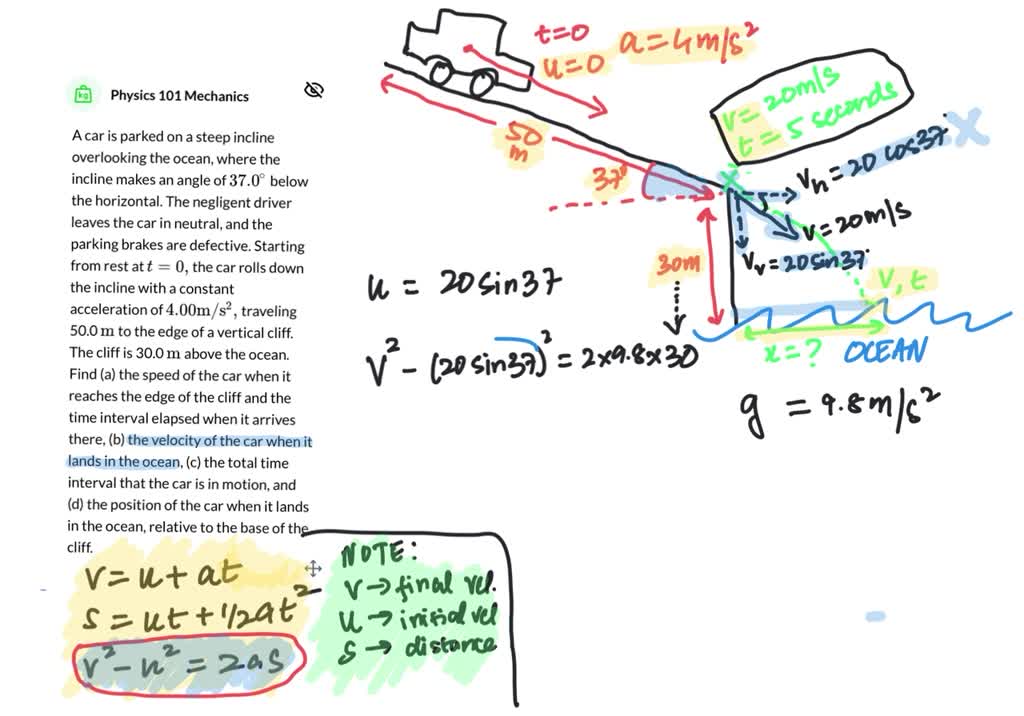 kg Physics 101 Mechanics
A car is parked on a steep incline
overlooking the ocean, where the
incline makes an angle of 37.0° below
the horizontal. The negligent driver
leaves the car in neutral, and the
parking brakes are defective. Starting
from rest at t = 0, the car rolls down
the incline with a constant
acceleration of 4.00m/s², traveling
50.0 m to the edge of a vertical cliff.
The cliff is 30.0 m above the ocean.
Find (a) the speed of the car when it
reaches the edge of the cliff and the
time interval elapsed when it arrives
there, (b) the velocity of the car when it
lands in the ocean, (c) the total time
interval that the car is in motion, and
(d) the position of the car when it lands
in the ocean, relative to the base of the
cliff.
v = u + at
s = ut + 1/2at²
v² - u² = 2as
NOTE:
v → final vel.
u → initial vel
s → distance
t=0
u=0
a = 4m/s²
50
m
37°
v = 20m/s
t = 5 seconds
Vh = 20 cos37° X
v = 20m/s
Vv = 20sin37°
30m
v, t
x = ?
OCEAN
u = 20sin37
v² - (20sin37)² = 2x9.8x30
g = 9.8m/s²